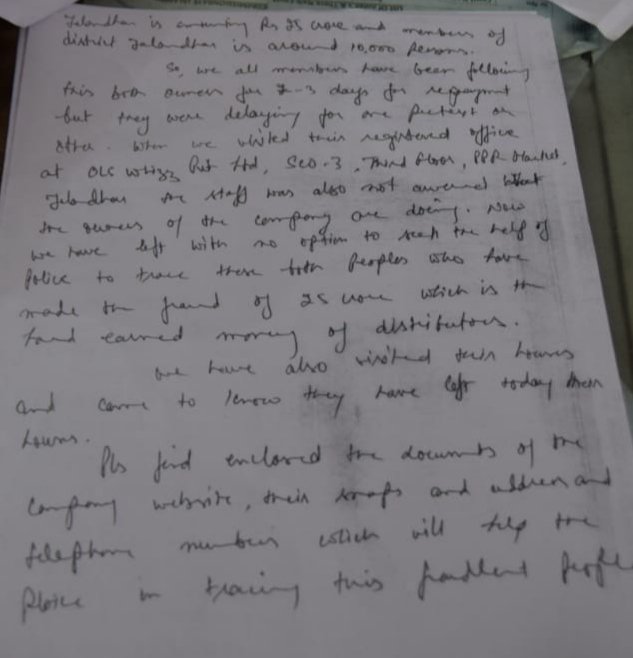 Jalandhar is amounting Rs 25 crore and members of
district Jalandhar is around 10,000 Persons.
So, we all members have been following
this both owners for 2-3 days for repayment
but they were delaying for one pretext or
other. When we visited their registered office
at OLS Whizz Pvt Ltd, SCO-3, Third floor, PPR Market,
Jalandhar the staff was also not awared what
the owners of the company are doing. Now
we have left with no option to seek the help of
Police to trace these both Peoples who have
made the fraud of 25 crore which is the
hard earned money of distributors.
We have also visited their houses
and came to know they have left today their
houses.
Pls find enclosed the documents of the
Company website, their snaps and address and
telephone numbers which will help the
Police in tracing this fraudlent People